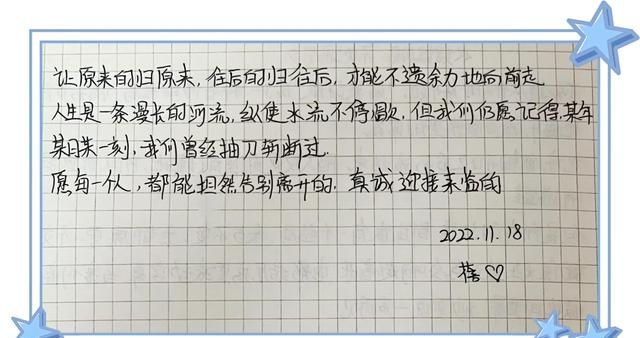 让原来的归原来，往后的归往后，才能不遗余力地向前走
人生是一条漫长的河流，纵使水流不停歇，但我们仍愿记得，某年
某月某一刻，我们曾经抽刀斩断过.
愿每一个人，都能坦然告别离开的，真诚迎接来临的
2022.11.18